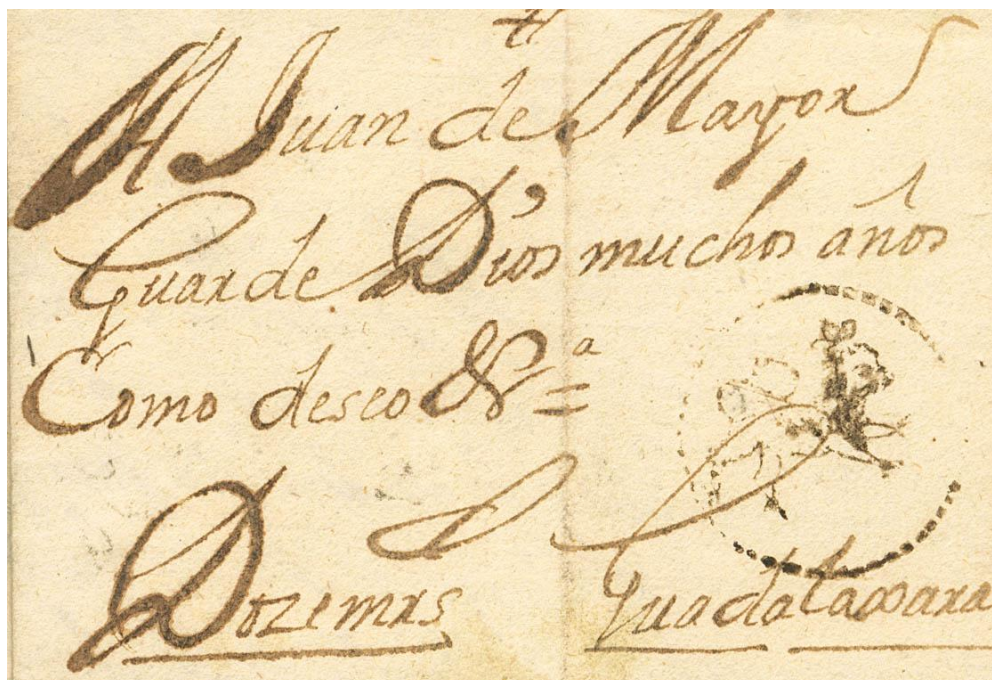 A Juan de Mayor
Guarde Dios muchos años
Como deseo &ª =
Dozemrs Guadalaxara